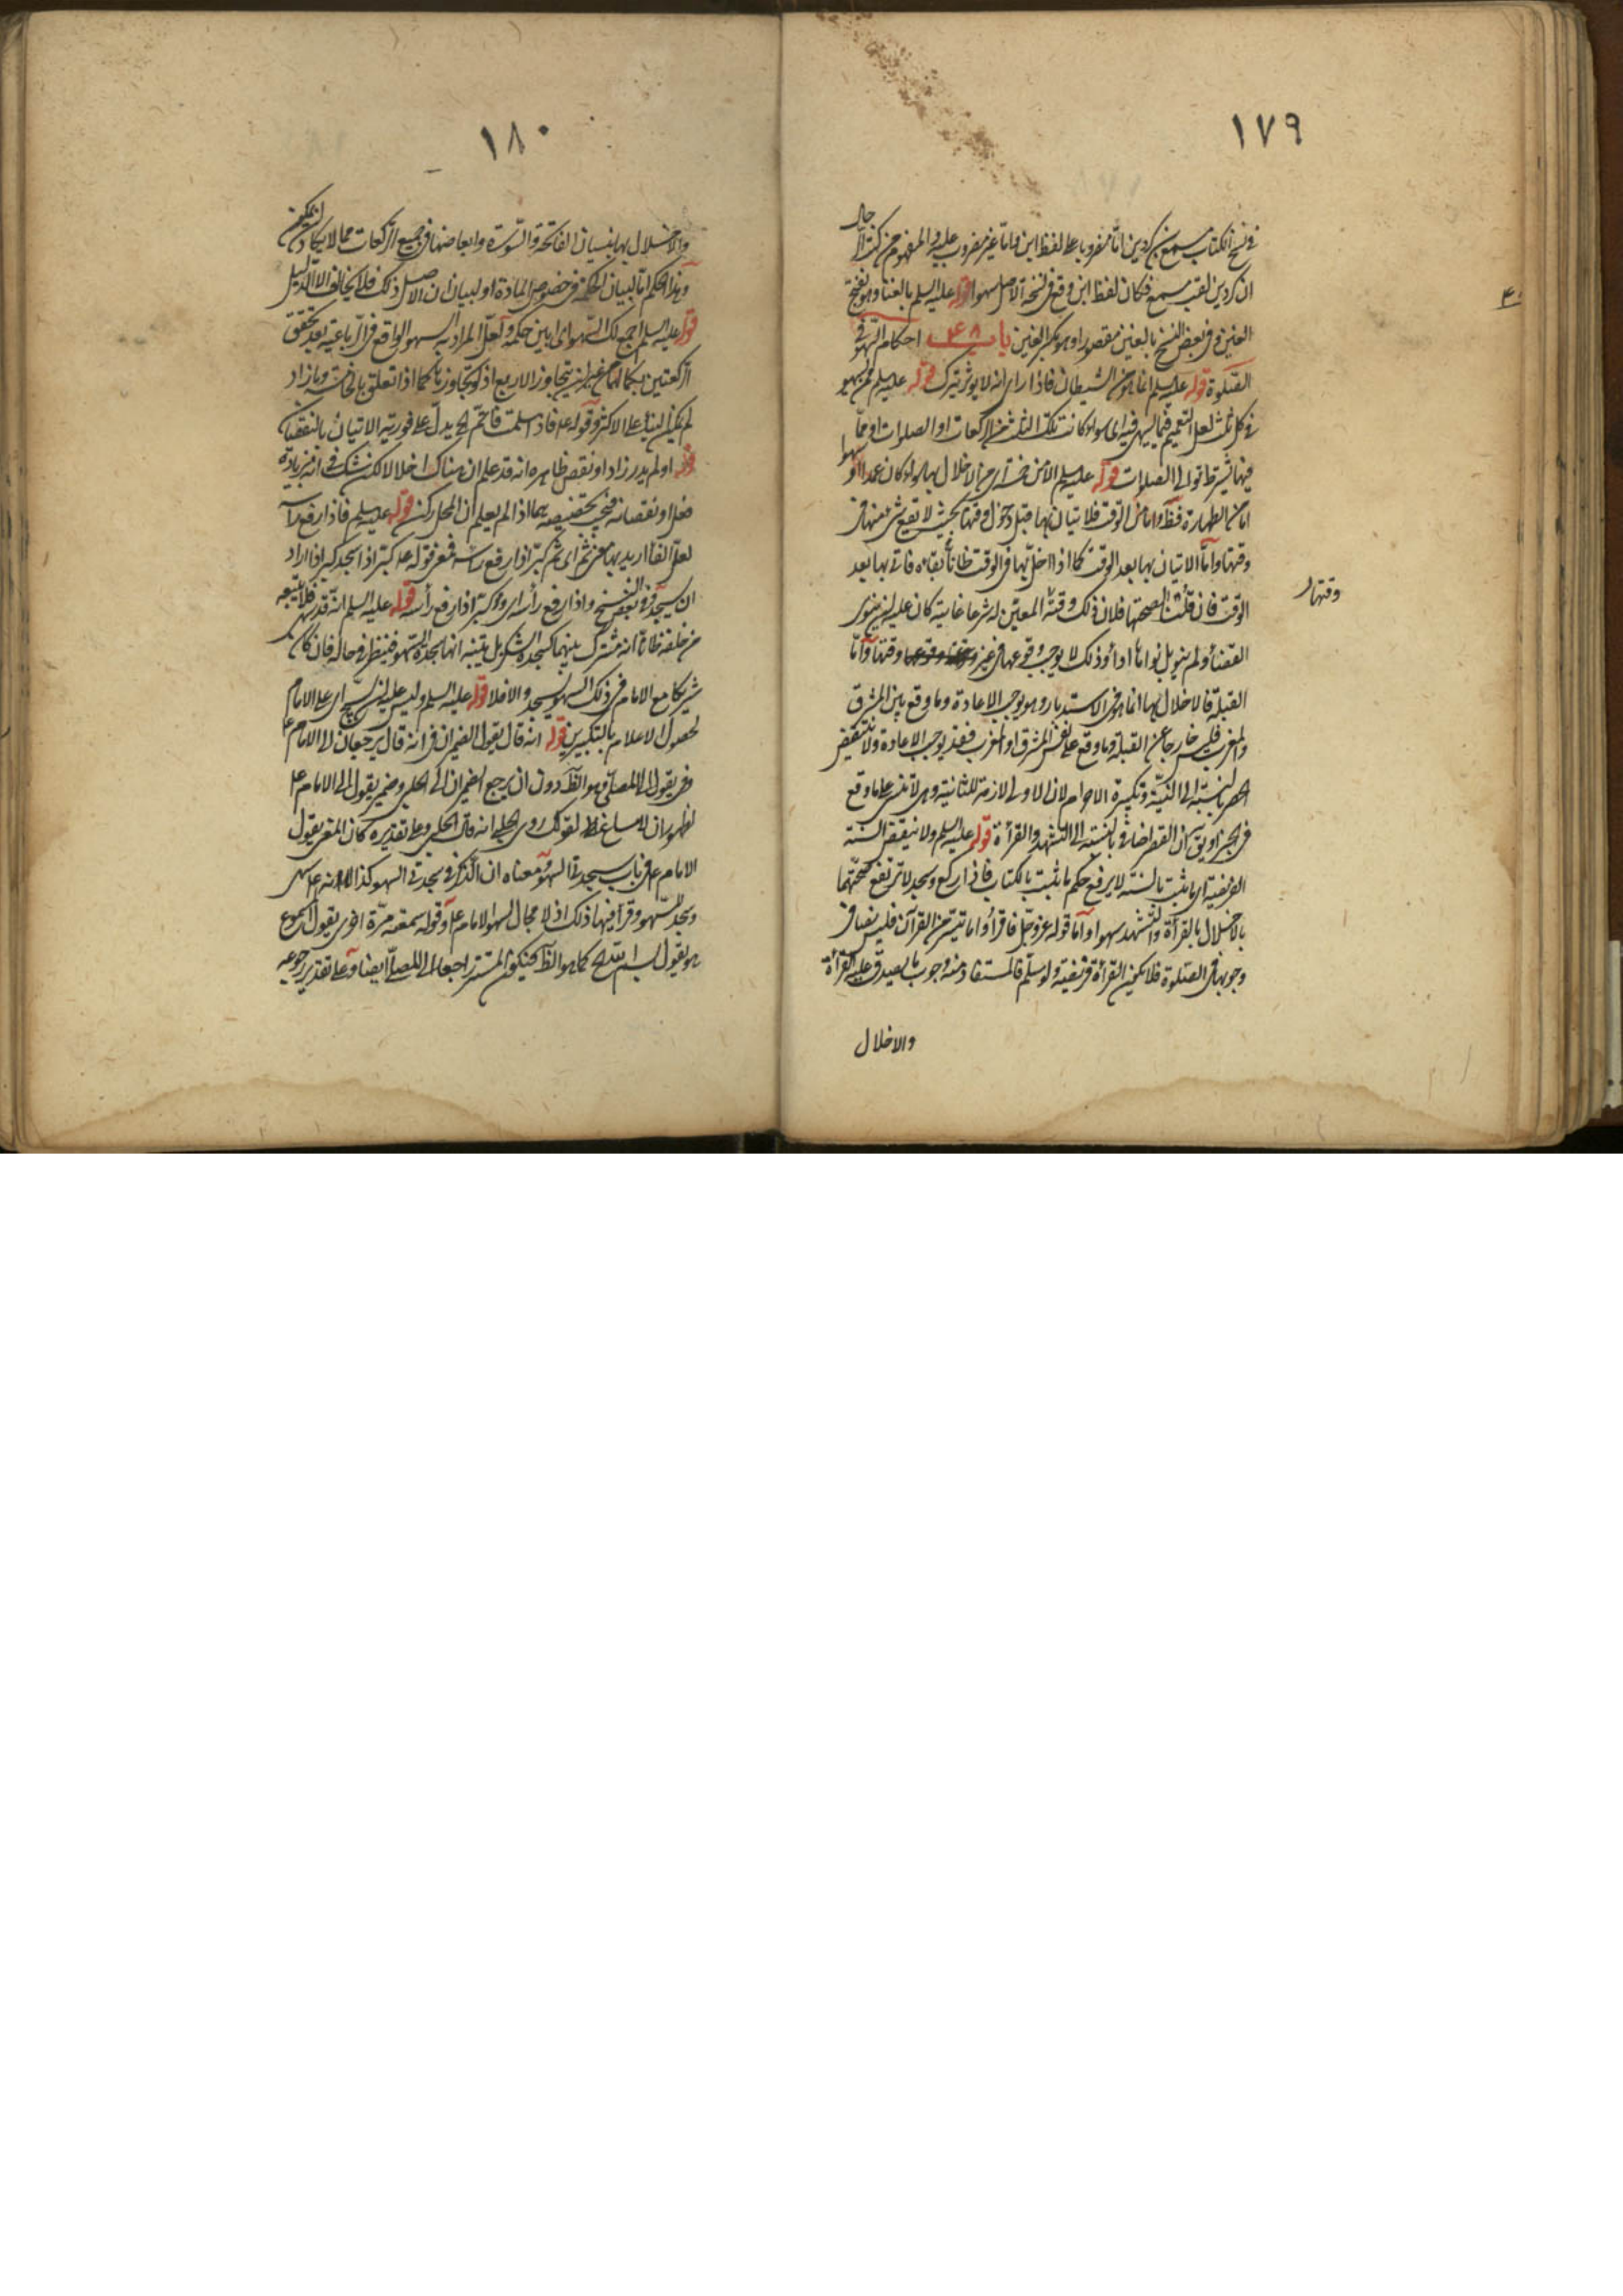 ١٧٩
في نسخ الكتاب مسمع بن كردين اما مضروبا على لفظ ابن واما غير مضروب عليه والمفهوم من كتب الرجال
ان كردين لقب مسمع فكان لفظ ابن وقع في نسخة الاصل سهوا قوله عليه السلم بالغنا وهو بفتح
الغين وفي بعض النسخ بالغين مقصورا وهو بكسر الغين باب ٤٨ احكام السهو في
الصلوة قوله عليه السلم انما هو من الشيطان فاذا راى انه لا يؤثر تركه قوله عليه السلم فمن يسهو
في كل ثلث لعل التعميم فيما يسهى فيه اى سواء كانت تلك الثلث من الركعات او الصلوات او مما
فيها يشترط توالى الصلوات قوله عليه السلم الا من خمسة اى من الاخلال بها سواء كان عمدا او سهوا
اما من الطهارة فظ واما من الوقت فلاتيان بها قبل دخول وقتها بحيث لا تقع شئ منها في
وقتها واما الاتيان بها بعد الوقت كما اذا اخل بها في الوقت ظانا بقاءه فاتى بها بعد
الوقت فان قلنا بصحتها فلان ذلك وقته المعين له شرعا غايته كان عليه ان ينوى
القضاء ولم ينو بل نواها اداء وذلك لا يوجب وقوعها في غير وقتها واما
القبلة فالاخلال بها انما هو في الاستدبار وهو يوجب الاعادة وما وقع بين المشرق
والمغرب فليس خارجا عن القبلة وما وقع على نفس المشرق او المغرب فقد يوجب الاعادة ولا ينتقض
الحصر بالنسبة الى النية وتكبيرة الاحرام لان الاولى لازمة للثانية وهى لا تنسى على ما وقع
في الخبر او يق ان القصر اضافي بالنسبة الى التشهد والقرأة قوله عليه السلم ولا ينقض السنة
الفريضة اى ما يثبت بالسنة لا يرفع حكم ما يثبت بالكتاب فاذا ركع وسجد لا ترتفع صحتهما
بالاخلال بالقرأة والتشهد سهوا واما قوله عز وجل فاقرأوا ما تيسر من القرآن فليس نصا في
وجوبها في الصلوة فلا يكون القرأة فريضة ولو سلم فالمستفاد منه وجوب ما يصدق عليه القرأة
والاخلال
وقتها
٤٨
١٨٠
والاخلال بها بنسيان الفاتحة والسورة وابعاضها في جميع الركعات مما لا يكاد ان يكون
وهذا الحكم اما لبيان الحكمة في خصوص المادة او لبيان ان الاصل ذلك فلا يخالف الا لدليل
قوله عليه السلم اجمع لك السهو اى ابين حكمه ولعل المراد به السهو الواقع في الرباعية بعد تحقق
الركعتين بكمالهما من غير ان يتجاوز الاربع اذ لو تجاوز بها كما اذا تعلق بالخامسة وما زاد
لم يكن البناء على الاكثر وقوله ع فاذا سلمت فاتم الخ يدل على فورية الاتيان بالنقصان
قوله او لم يدر زاد او نقص ظاهره انه قد علم ان هناك اخلالا لكن شك في انه بزيادة
فعل او نقصانه فيجب تخصيصه بما اذا لم يعلم ان المحل ركن قوله عليه السلم فاذا رفع راسه
لعل الفا اريد بها معنى ثم اى ثم كبر اذا رفع راسه فمعنى قوله ع كبر اذا سجد كبر اذا اراد
ان يسجد وفى بعض النسخ واذا رفع رأسه اى وكبر اذا رفع رأسه قوله عليه السلم انه قد سهى فلا يتبعه
من خلفه ظانا انه مشترك بينهما كسجدة الشكر بل يتنبه انها سجدة السهو فينظر في حاله فان كان
شريكا مع الامام في ذلك السهو يسجد والا فلا قوله عليه السلم وليس عليه ان يسبح اى على الامام
لحصول الاعلام بالتكبيرين قوله انه قال يقول الضميران في انه قال يرجعان الى الامام ع
وفي يقول الى المصلى وهو الظ دون ان يرجع الضميران الى الحلبي وضمير يقول الى الامام ع
لظهور ان لا مساغ لقولك روى الحلبي انه قال الحلبي وعلى تقديره كان المعنى يقول
الامام ع في باب سجدتى السهو ومعناه ان الذكر في سجدتى السهو كذا لا انه ع سهى
وسجد للسهو وقرأ فيها ذلك اذ لا مجال لسهو الامام ع وقوله سمعته مرة اخرى يقول المسموع
هو يقول بسم الله الخ كما هو الظ فيكون المستتر راجعا الى المصلى ايضا وعلى تقدير رجوعه